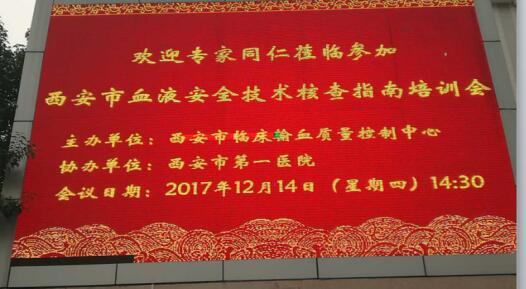 欢迎专家同仁莅临参加
西安市血液安全技术核查指南培训会
主办单位：西安市临床输血质量控制中心
协办单位：西安市第一医院
会议日期：2017年12月14日（星期四）14:30